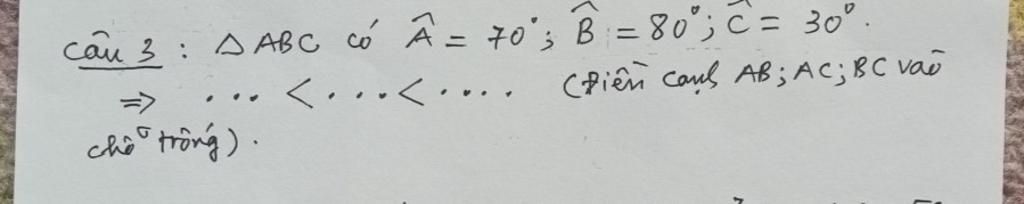 Câu 3 : △ ABC có Â = 70°; B̂ = 80°; Ĉ = 30°.
⇒ ... < .... < .... (Điền cạnh AB; AC; BC vào
chỗ trống).